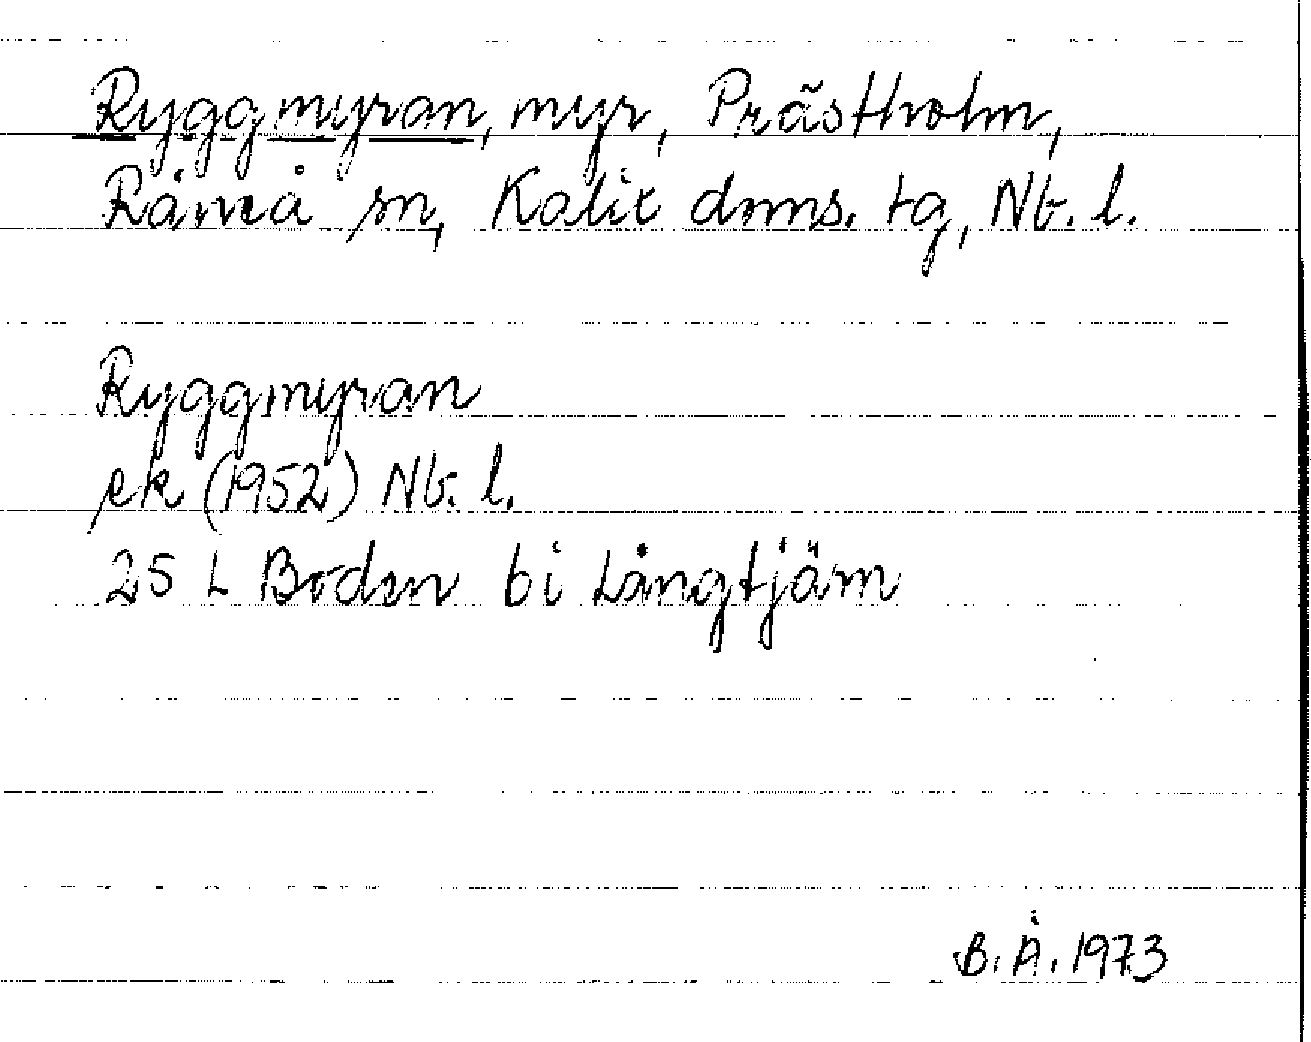 Ryggmyran, myr, Prästholm,
Råneå sn, Kalix doms. tg, Nb. l.
Ryggmyran
ek (1952) Nb. l.
25 L Boden bi Långtjärn
B. Å. 1973